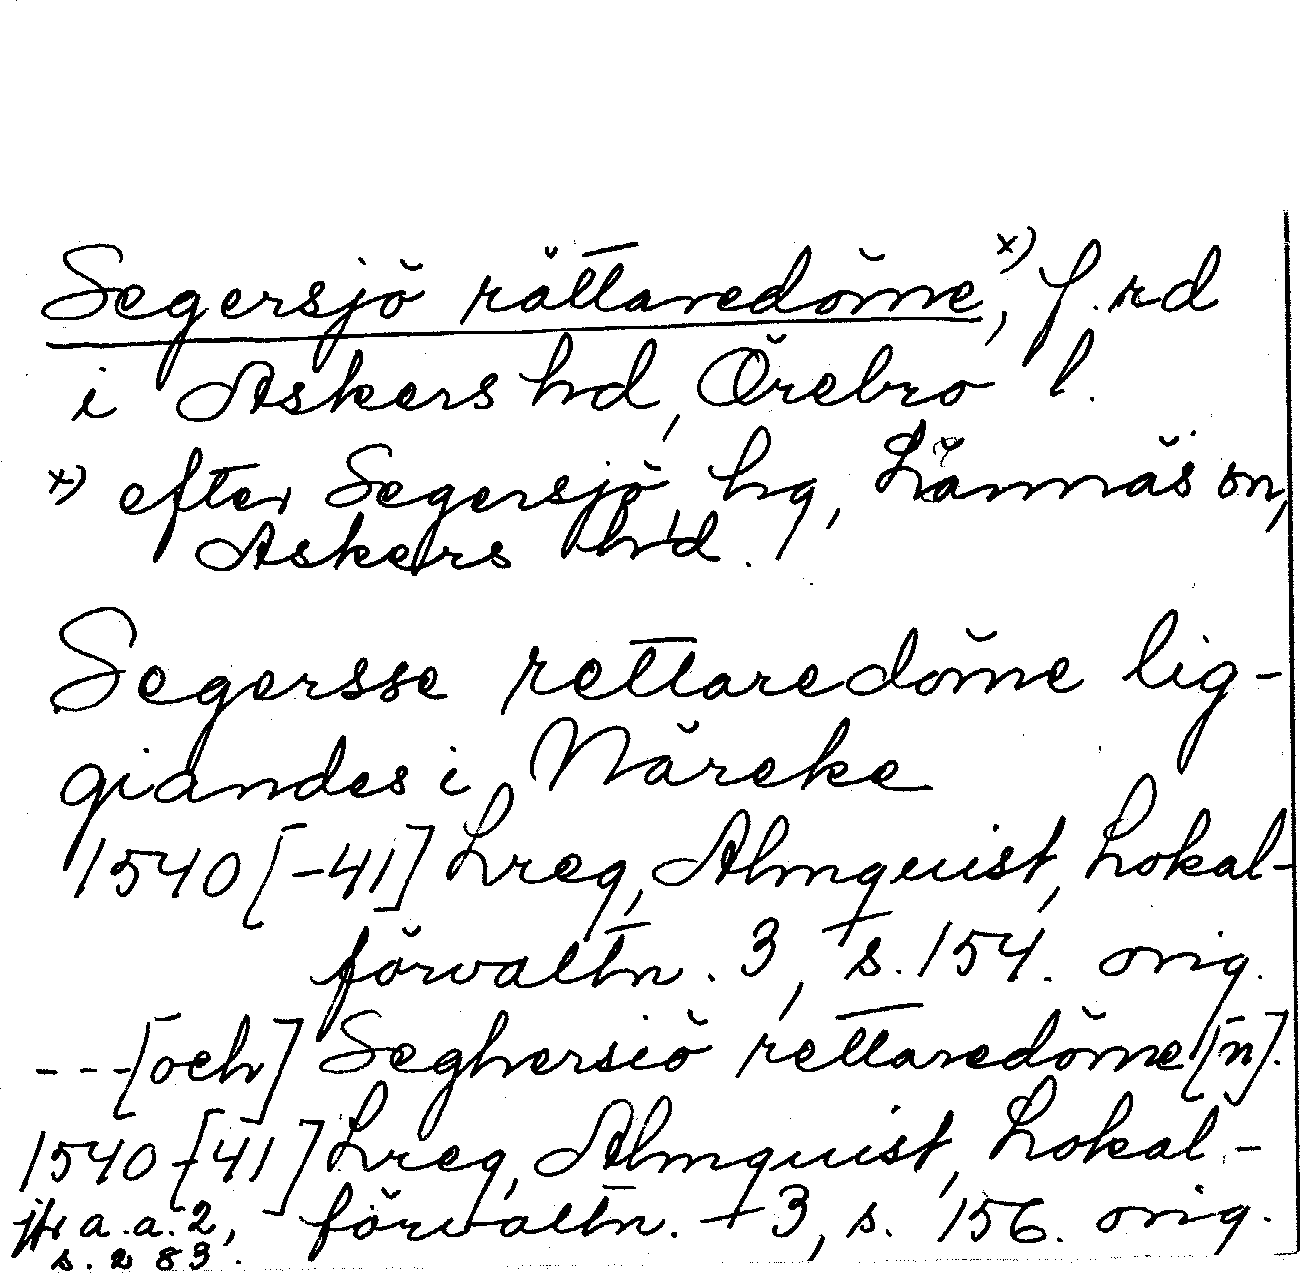 Segersjö rättaredöme,ˣ⁾ f. rd
i Askers hd, Örebro l.
x) efter Segersjö, hg, Lännäs sn,
Askers hd.
Segersse rettaredöme lig-
giandes i Näreke
1540[-41] Lreg, Almquist, Lokal-
förvaltn. 3, s. 154. orig.
---[och] Seghersiö rettaredöme[n].
1540-[41] Lreg, Almquist, Lokal-
förvaltn. 3, s. 156. orig.
jfr a.a. 2,
s. 283.